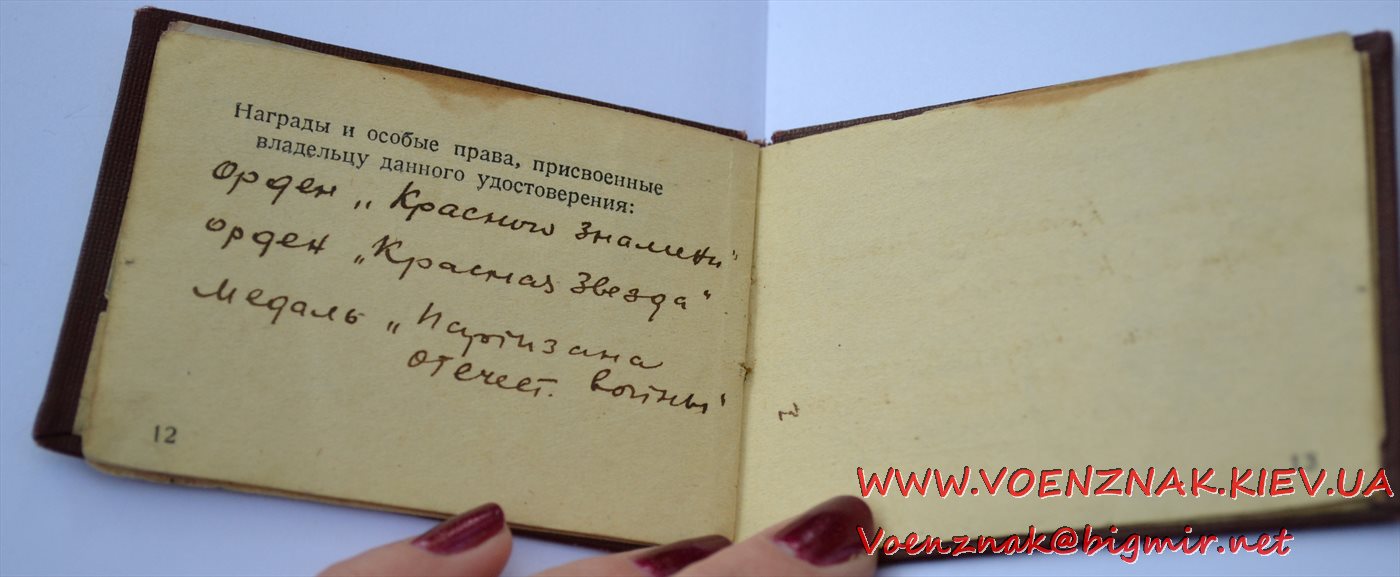 Награды и особые права, присвоенные
владельцу данного удостоверения:
Орден „Красного Знамени"
орден „Красная Звезда"
Медаль „Партизана
отечест. войны"
12
13
WWW.VOENZNAK.KIEV.UA
Voenznak@bigmir.net